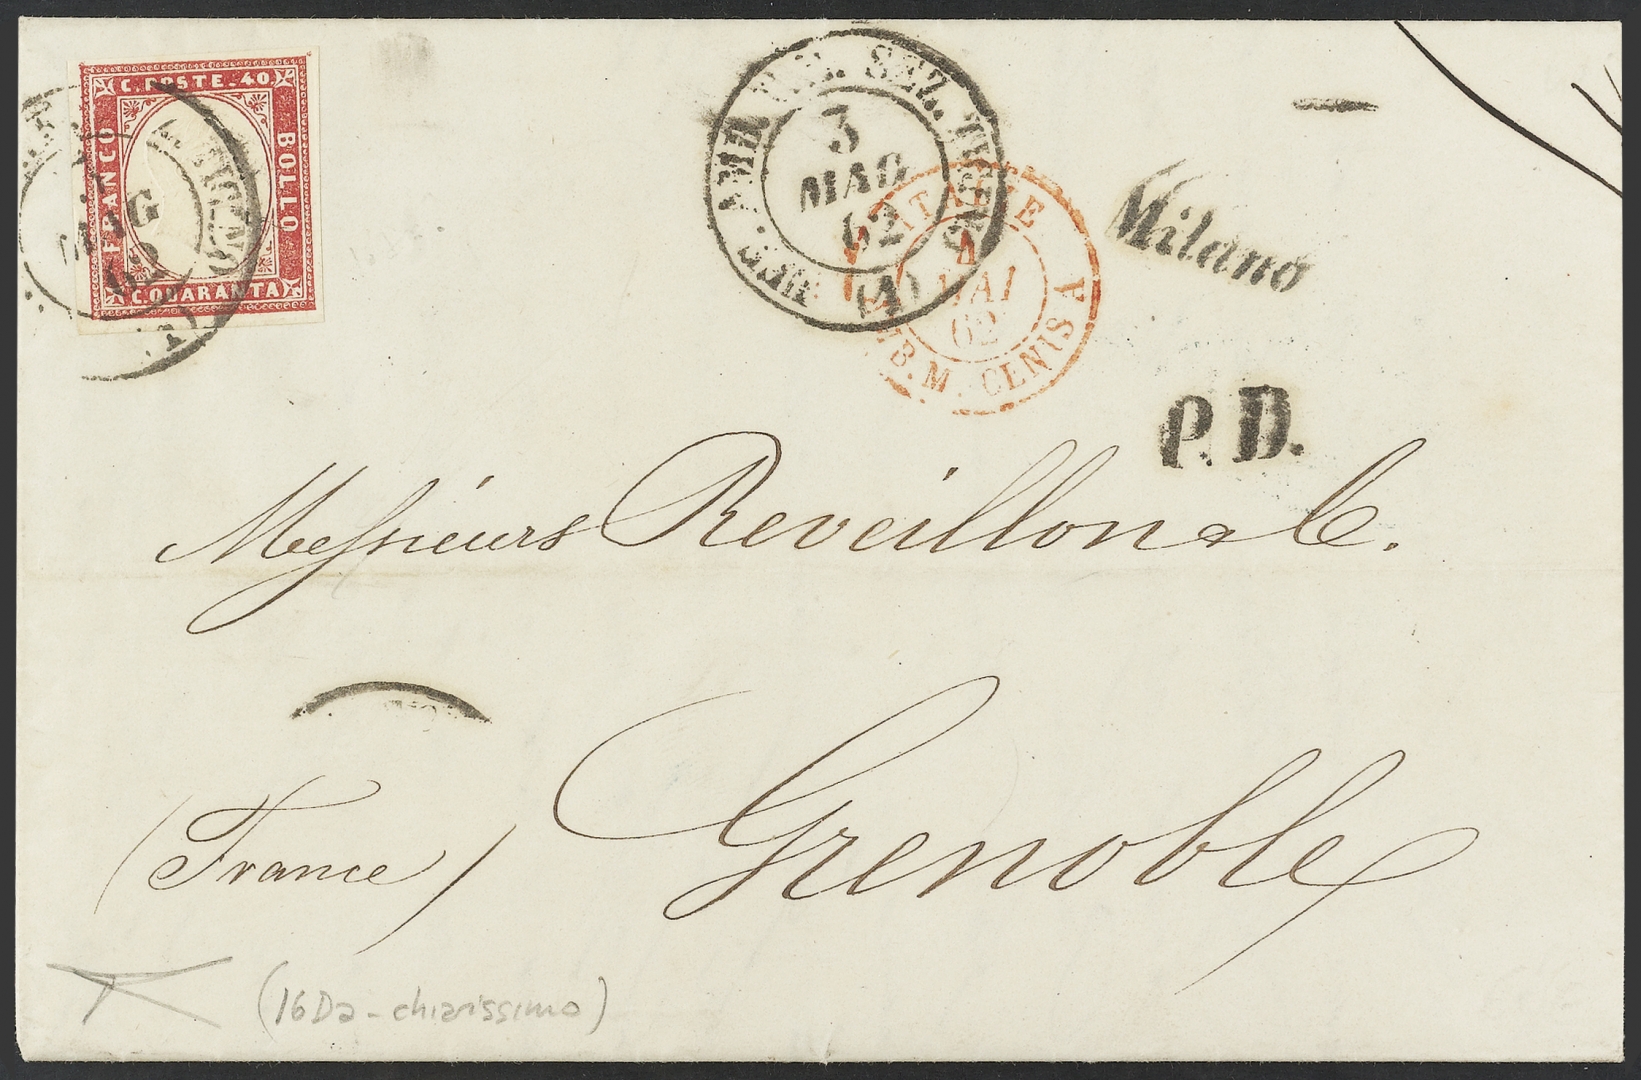 C. POSTE. 40.
FRANCO
BOLLO
C. QUARANTA
MAG
62
UFF. AMB. SEZ. TICINO
3
MAG
62
(1)
ITALIE
4
MAI
62
AMB. M. CENIS A
Milano
P.D.
Messieurs Reveillon & C.
Grenoble
(France)
(16Da - chiarissimo)